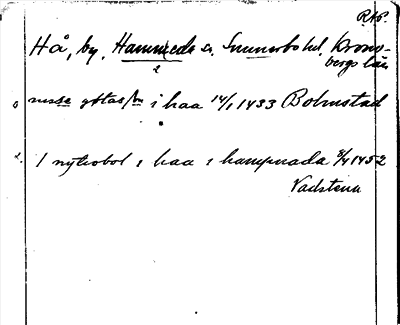 RAP.
Hå, by, Hamneda s. Sunnerbo hd. Krono-
bergs län
2
nisse gøtas/on i haa 14/1 1433 Bolmstad
2. I nyliobol i haa i hampnada 8/4 1452
Vadstena